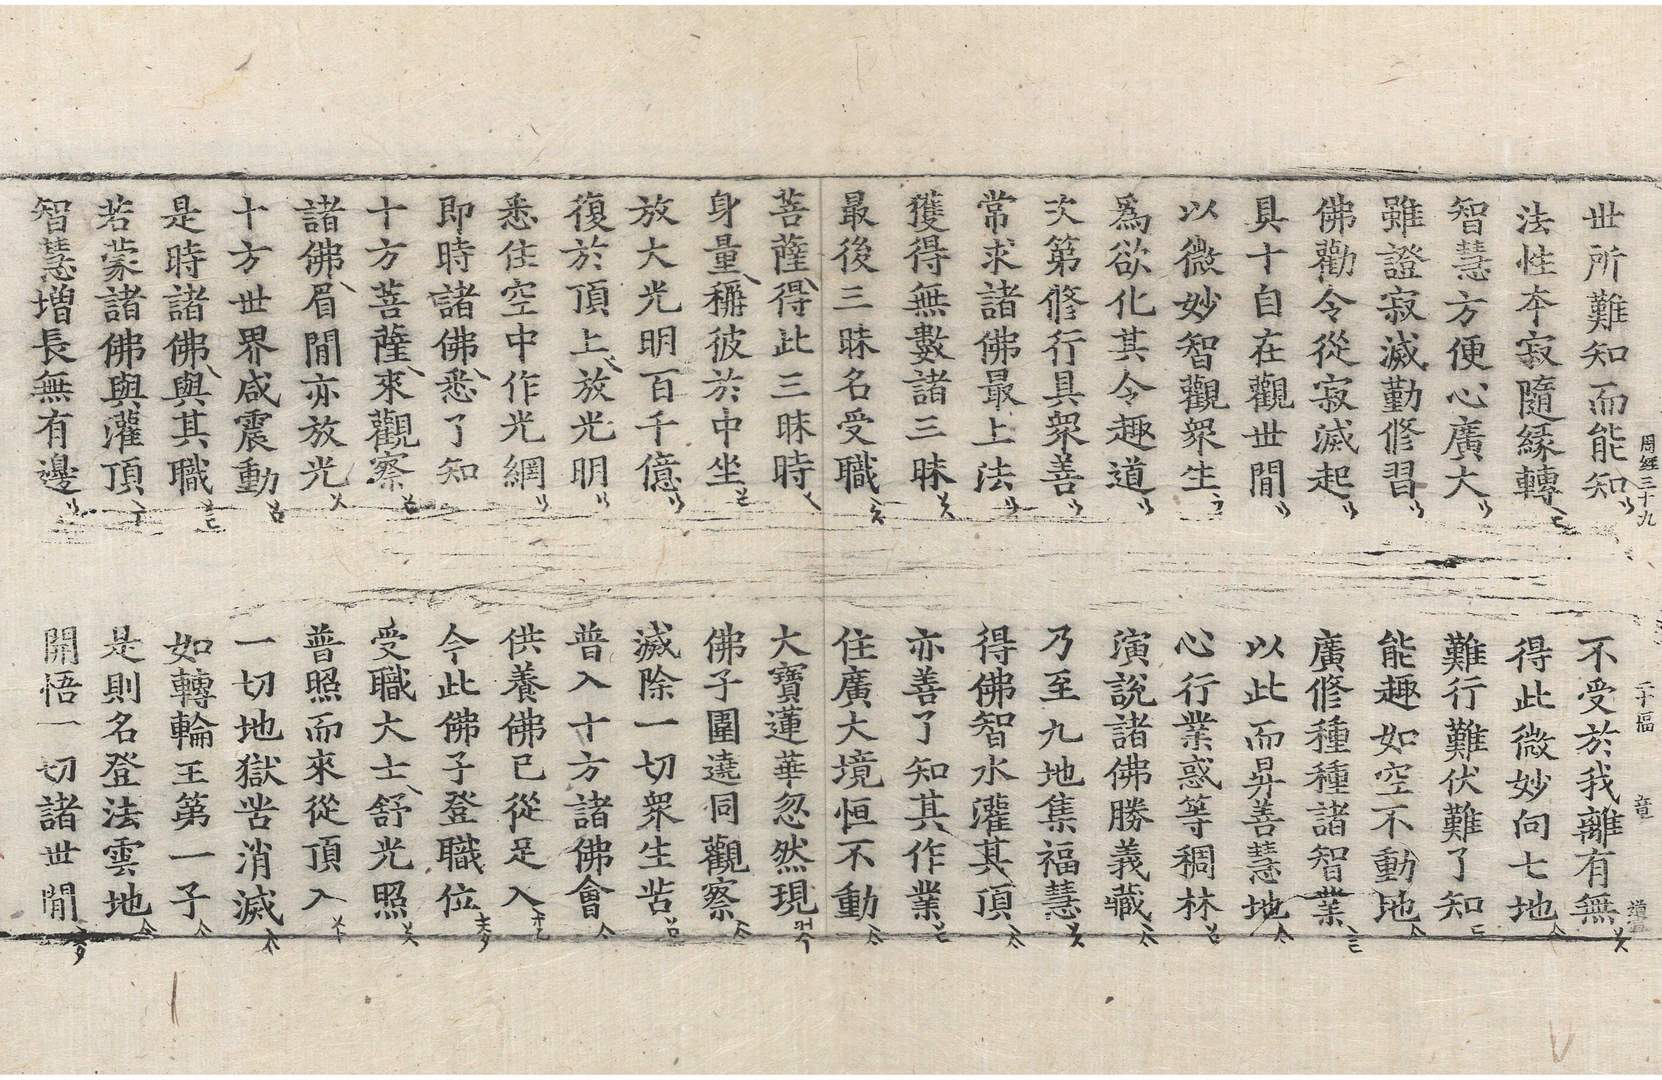 周經三十九 二十幅 章
世所難知而能知 不受於我離有無
法性本寂隨緣轉 得此微妙向七地
智慧方便心廣大 難行難伏難了知
雖證寂滅勤修習 能趣如空不動地
佛勸令從寂滅起 廣修種種諸智業
具十自在觀世閒 以此而昇善慧地
以微妙智觀衆生 心行業惑等稠林
爲欲化其令趣道 演說諸佛勝義藏
次第修行具衆善 乃至九地集福慧
常求諸佛最上法 得佛智水灌其頂
獲得無數諸三昧 亦善了知其作業
最後三昧名受職 住廣大境恒不動
菩薩得此三昧時 大寶蓮華忽然現
身量稱彼於中坐 佛子圍遶同觀察
放大光明百千億 滅除一切衆生苦
復於頂上放光明 普入十方諸佛會
悉住空中作光網 供養佛已從足入
即時諸佛悉了知 今此佛子登職位
十方菩薩來觀察 受職大士舒光照
諸佛眉閒亦放光 普照而來從頂入
十方世界咸震動 一切地獄苦消滅
是時諸佛與其職 如轉輪王第一子
若蒙諸佛與灌頂 是則名登法雲地
智慧增長無有邊 開悟一切諸世閒